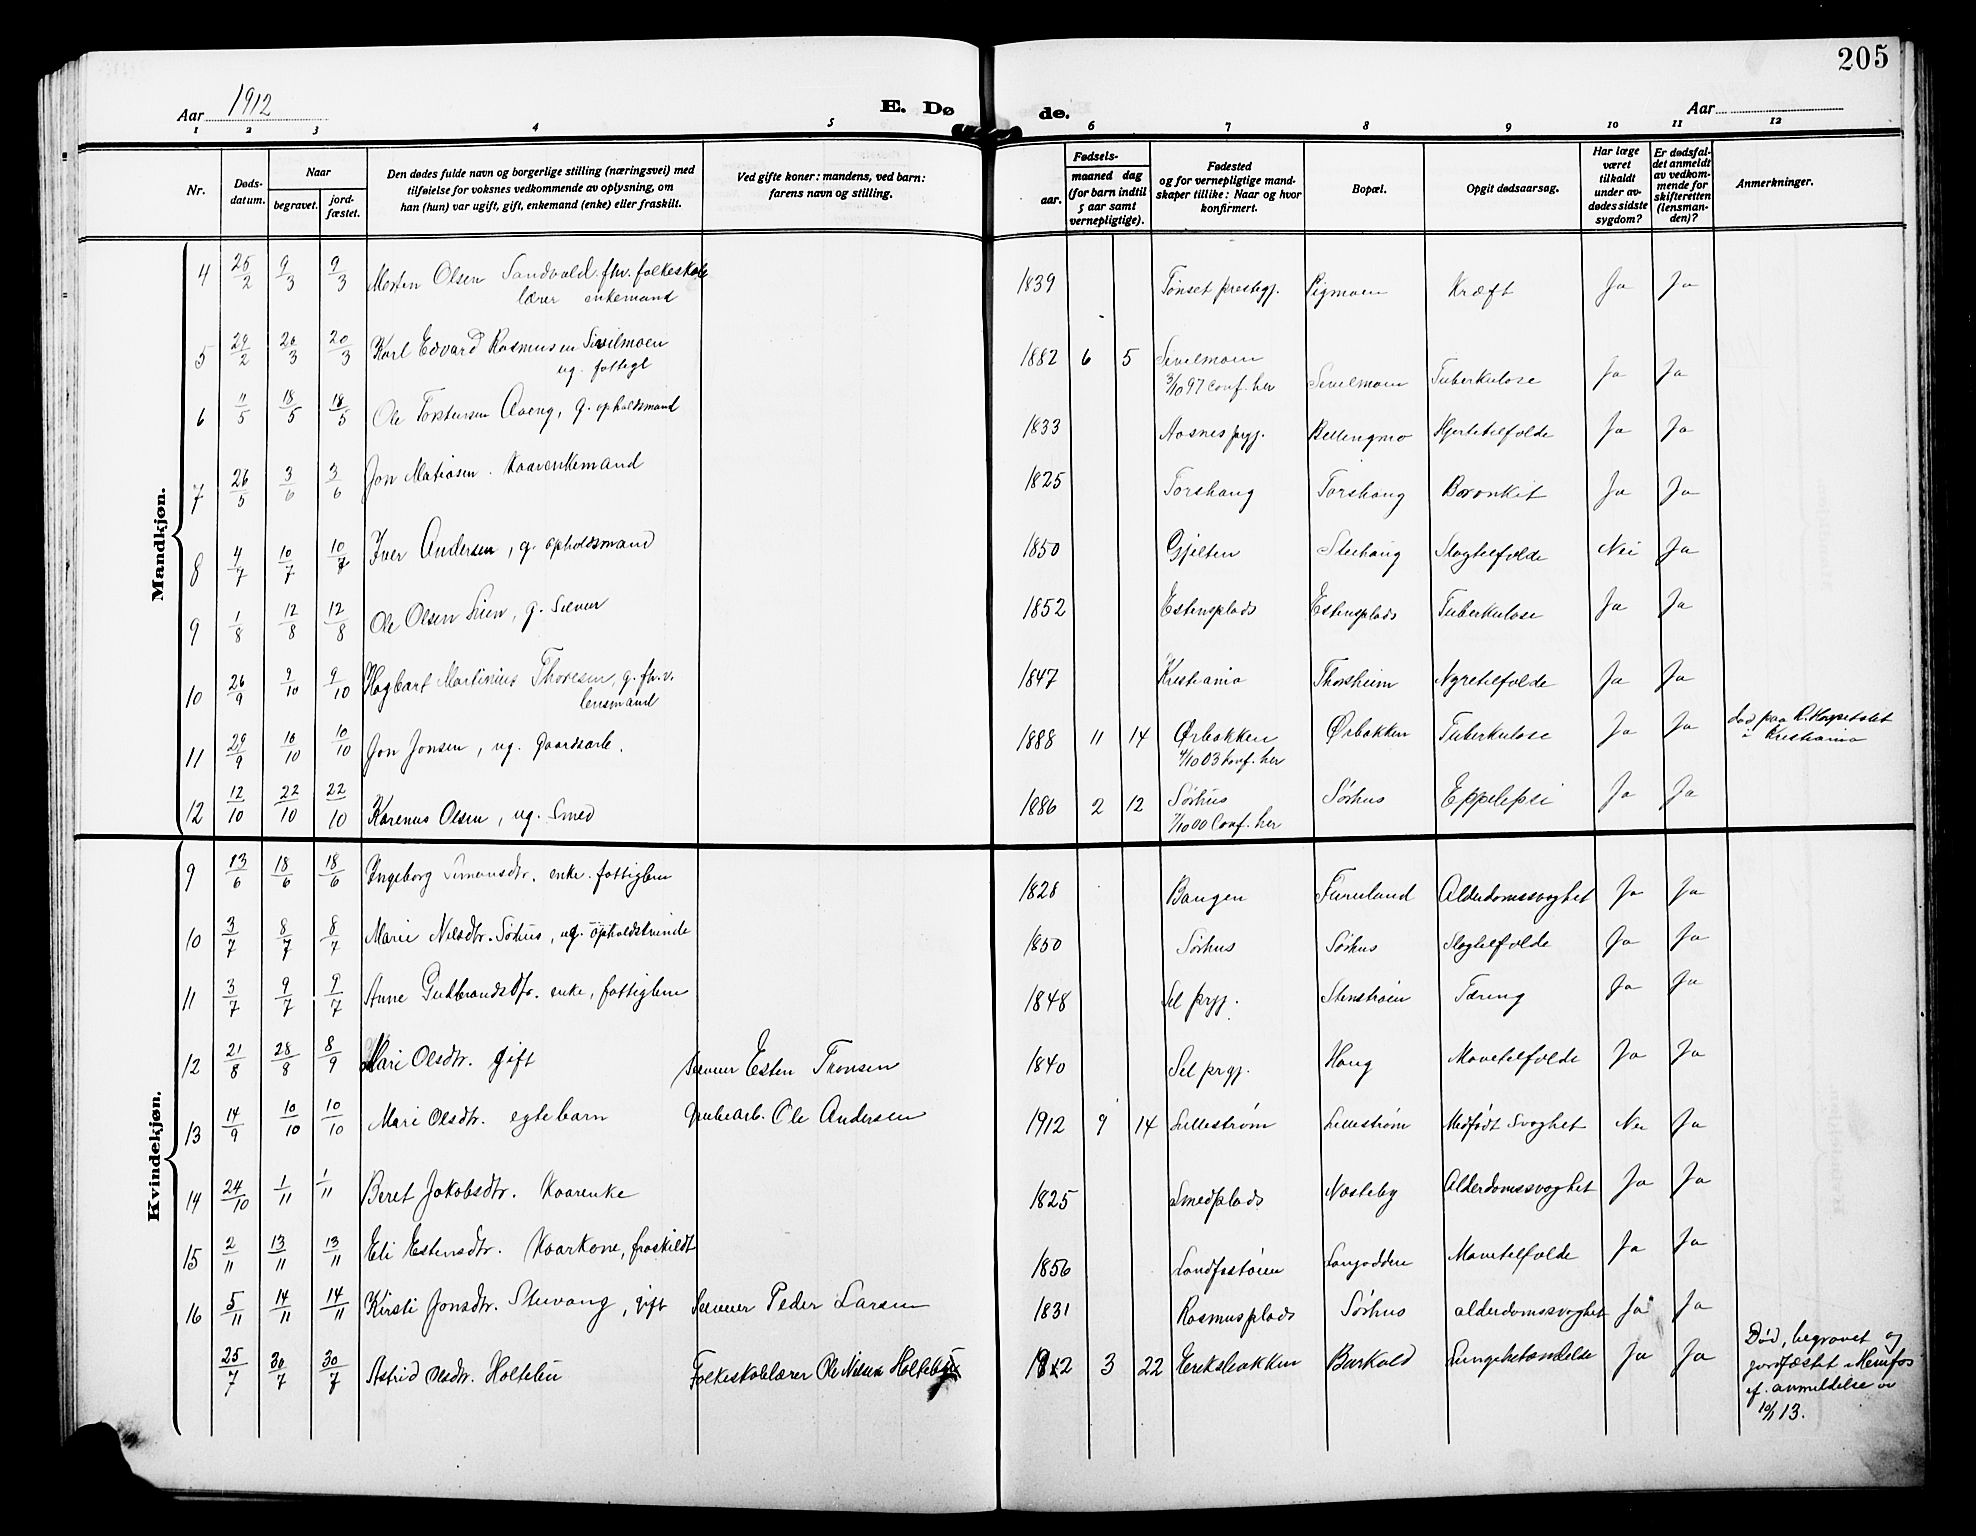 205
Aar 1912
E. Dø
de.
Aar
1 2 3 4 5 6 7 8 9 10 11 12
Nr.
Døds-
datum.
Naar
begravet.
jord-
fæstet.
Den dødes fulde navn og borgerlige stilling (næringsvei) med
tilføielse for voksnes vedkommende av oplysning, om
han (hun) var ugift, gift, enkemand (enke) eller fraskilt.
Ved gifte koner: mandens, ved barn:
farens navn og stilling.
Fødsels-
aar.
maaned dag
(for barn indtil
5 aar samt
vernepligtige).
Fødested
og for vernepligtige mand-
skaper tillike: Naar og hvor
konfirmert.
Bopæl.
Opgit dødsaarsag.
Har læge
været
tilkaldt
under av-
dødes sidste
sygdom?
Er dødsfal-
det anmeldt
av vedkom-
mende for
skifteretten
(lensman-
den)?
Anmerkninger.
Mandkjøn.
4 25/2 9/3 9/3 Morten Olsen Sandvold. fhv. folkeskole 1839 Tønset prestegj. Kræft Ja Ja
lærer enkemand
5 29/2 20/3 20/3 Karl Edvard Rasmussen Sivilmoen 1882 6 5 Sivilmoen Sivilmoen Tuberkulose Ja Ja
ug. fattigl
3/10 97 Conf. her
6 11/5 18/5 18/5 Ole Torstensen Aaeng, g. opholdsmand 1833 Aasnes prgj. Bellingmo Hjertetilfælde Ja Ja
7 26/5 3/6 3/6 Jon Matiasen. Kaarenkemand 1825 Torshaug Torshaug Bronkit Ja Ja
8 4/7 10/7 10/7 Iver Andersen, g. opholdsmand 1850 Gjelten Sluhaug Slagtilfælde Nei Ja
9 1/8 12/8 12/8 Ole Olsen Lien, g. Selveier 1852 Estensplads Estensplads Tuberkulose Ja Ja
10 26/9 9/10 9/10 Hagbart Martinius Thoresen, g. fhv. 1847 Kristiania Thorsheim Nyretilfælde Ja Ja
lensmand
11 29/9 10/10 10/10 Jon Jonsen, ug. Gaardsarb. 1888 11 14 Ørbakken Ørbakken Tuberkulose Ja Ja død paa R. Hospitalet
4/10 03 Conf. her
i Kristiania
12 12/10 22/10 22/10 Karenus Olsen, ug. Smed 1886 2 12 Sørhus Sørhus Eppelepsi Ja Ja
7/10 00 Conf. her
Kvindekjøn.
9 13/6 18/6 18/6 Ingeborg Simensdtr. enke. fattiglem 1828 Bangen Furuland Alderdomssvaghet Ja Ja
10 3/7 8/7 8/7 Marie Nilsdtr. Sørhus, ug. opholdskvinde 1850 Sørhus Sørhus Slagtilfælde Ja Ja
11 3/7 9/7 9/7 Anne Gudbrandsdtr. enke, fattiglem 1848 Sel prgj. Stenstrøen Tæring Ja Ja
12 21/8 28/8 8/9 Mari Olsdtr. gift Selveier Esten Tronsen 1840 Sel prgj. Haug Mavetilfælde Ja Ja
13 14/9 10/10 10/10 Mari Olsdtr. egtebarn Grubearb. Ole Andersen 1912 9 14 Lillestrøm Lillestrøm Medfødt Svaghet Nei Ja
14 24/10 1/11 1/11 Beret Jakobsdtr. Kaarenke 1825 Smedplads Næsteby Alderdomssvaghet Ja Ja
15 2/11 13/11 13/11 Eli Estensdtr. Kaarkone, fraskildt 1856 Sandfastøien Langodden Mavetilfælde Ja Ja
16 5/11 14/11 14/11 Kirsti Jonsdtr. Stuvang, gift Selveier Peder Larsen 1831 Rasmusplads Sørhus alderdomssvaghet Ja Ja
25/7 30/7 30/7 Astrid Olsdtr. Holtebu Folkeskolelærer Ole Nilsen Holtebu 1912 3 22 Eriksbakken Barkald Lungebetændelse Ja Ja Død, begravet og
jordfæstet i Hemfos
ef. anmeldelse av
10/1 13.